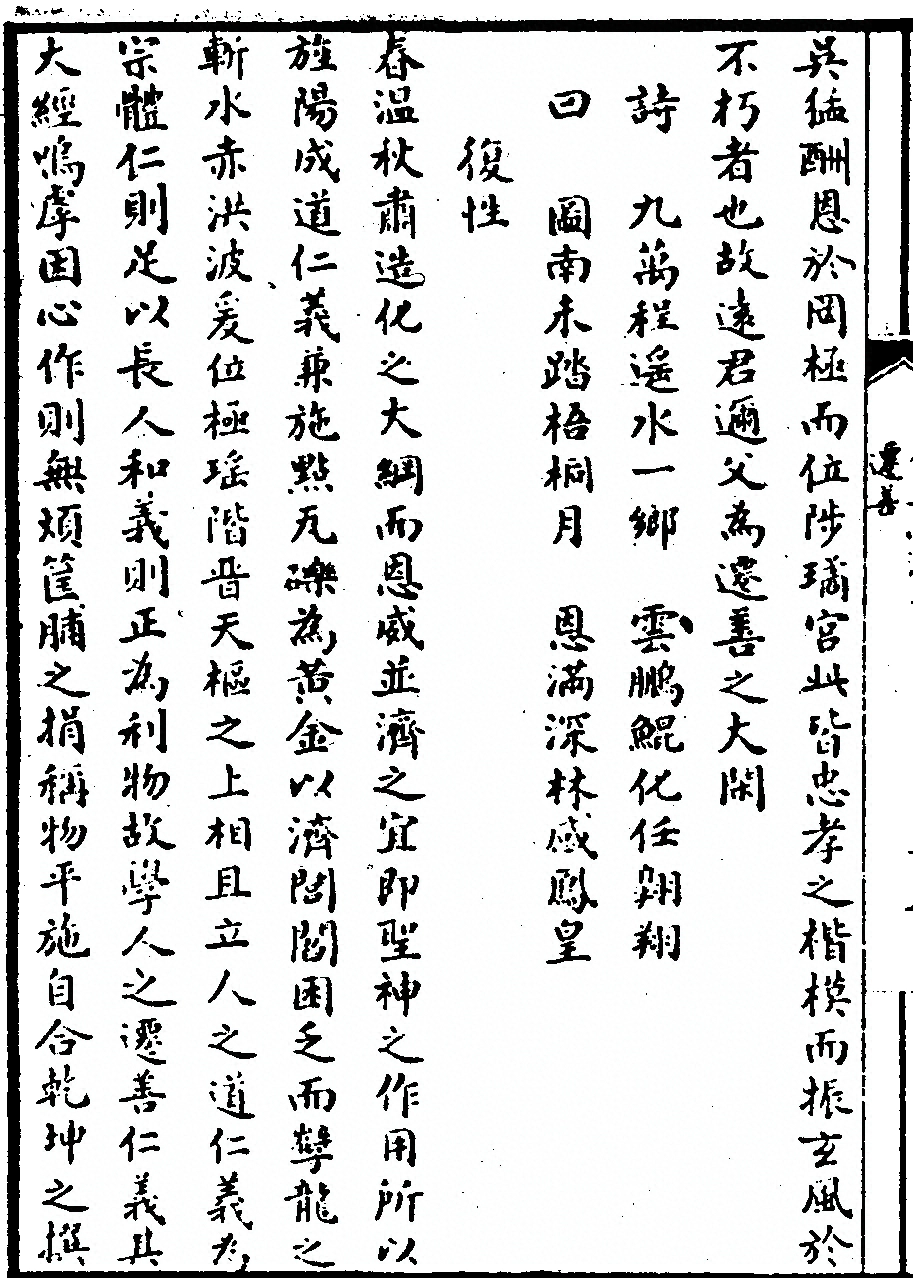 吳猛酬恩於罔極而位陟璚宮此皆忠孝之楷模而振玄風於
不朽者也故遠君邇父為遷善之大閑
詩 九萬程遥水一鄉 雲鵬鯤化任翱翔
曰 圖南未踏梧桐月 恩滿深林感鳳皇
復性
春温秋肅造化之大綱而恩威並濟之宜即聖神之作用所以
旌陽成道仁義兼施點瓦礫為黃金以濟閭閻困乏而孽龍之
斬水赤洪波爰位極瑶階晋天樞之上相且立人之道仁義為
宗體仁則足以長人和義則正為利物故學人之遷善仁義其
大經嗚虖因心作則無煩筐脯之捐稱物平施自合乾坤之撰
遷善